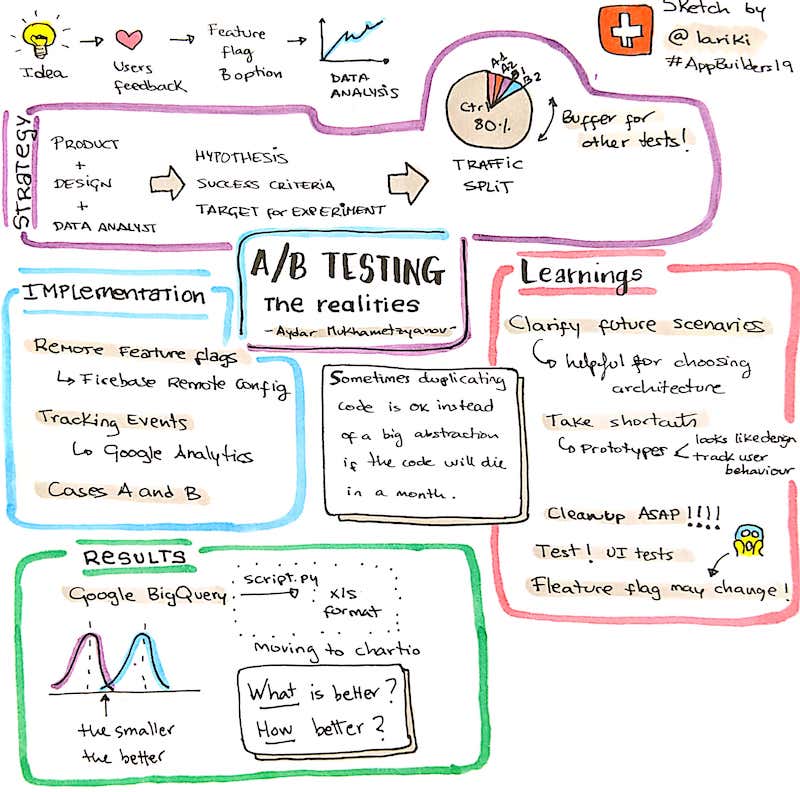 Idea
Users
feedback
Feature
flag
Boption
DATA
ANALYSIS
Sketch by
@lariki
#AppBuilders19
STRATEGY
PRODUCT
+
DESIGN
+
DATA ANALYST
HYPOTHESIS
SUCCESS CRITERIA
TARGET for EXPERIMENT
A1
A2
B1
B2
Ctrl
80%
TRAFFIC
SPLIT
Buffer for
other tests!
A/B TESTING
The realities
- Aydar Mukhametzyanov -
IMPLEMENTATION
Remote Feature flags
Firebase Remote Config
Tracking Events
Google Analytics
Cases A and B
Sometimes duplicating
code is ok instead
of a big abstraction
if the code will die
in a month.
Learnings
Clarify future scenarios
helpful for choosing
architecture
Take shortcuts
Prototypes < looks like design
track user
behaviour
Cleanup ASAP !!!!
Test! UI tests
Fleature flag may change!
RESULTS
Google BigQuery
script.py
xls
format
moving to chartio
the smaller
the better
What is better?
How better?